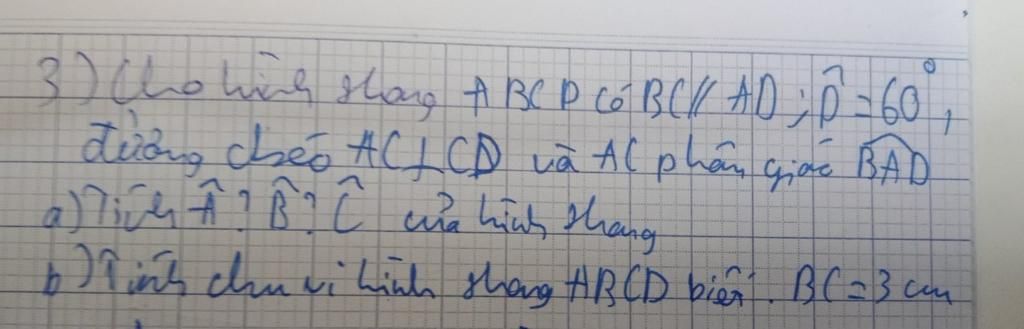 3) Cho hình thang ABCD có BC // AD; D̂ = 60°,
đường chéo AC ⊥ CD và AC phân giác BAD
a) Tính Â? B̂? Ĉ của hình thang
b) Tính chu vi hình thang ABCD biết. BC = 3 cm